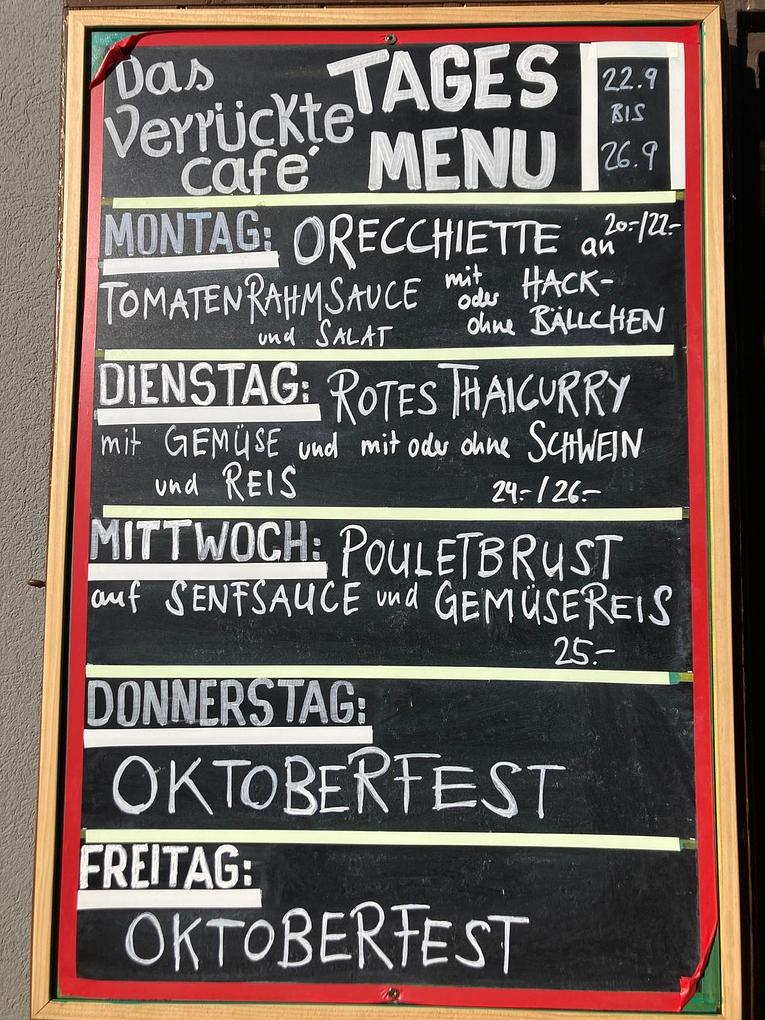 Das
Verrückte
café
TAGES
MENU
22.9
BIS
26.9
MONTAG: ORECCHIETTE an 20.-/22.-
TOMATENRAHMSAUCE mit oder ohne HACK-
BÄLLCHEN
und SALAT
DIENSTAG: ROTES THAICURRY
mit GEMÜSE und mit oder ohne SCHWEIN
und REIS 24.-/26.-
MITTWOCH: POULETBRUST
auf SENFSAUCE und GEMÜSEREIS
25.-
DONNERSTAG:
OKTOBERFEST
FREITAG:
OKTOBERFEST